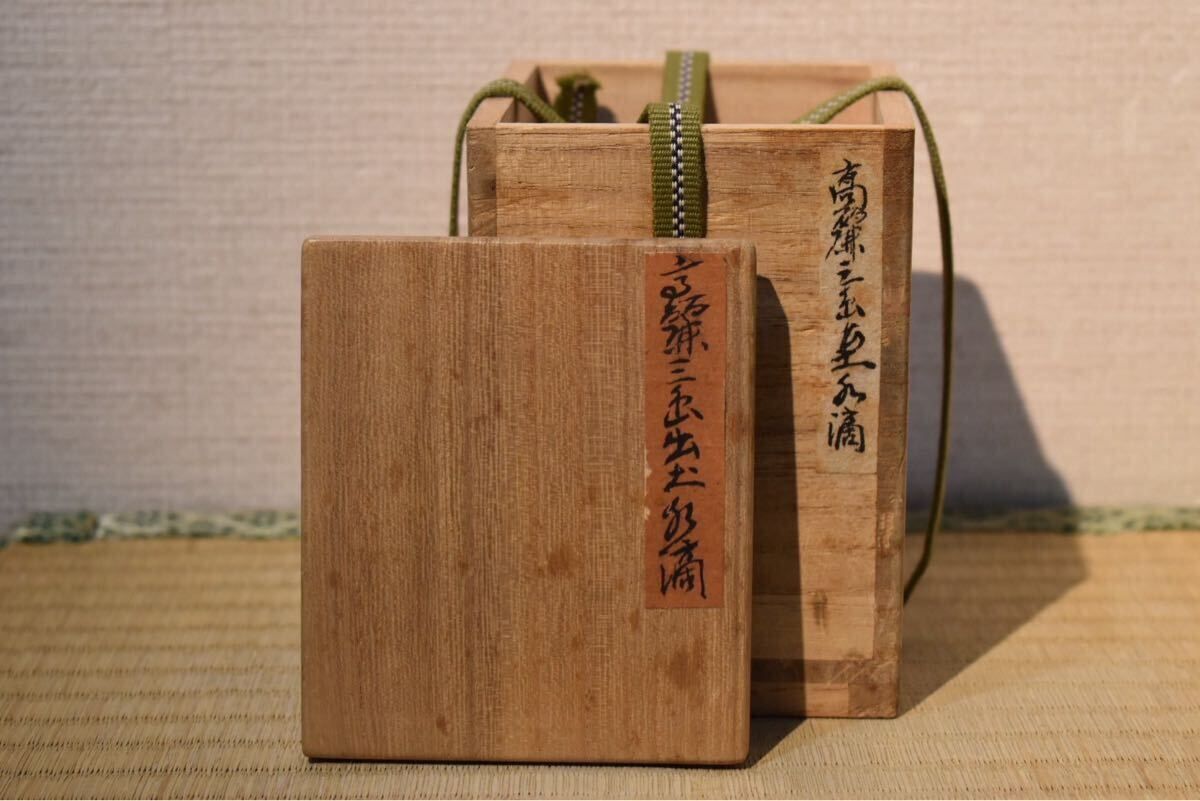 高麗三島出土水滴
高麗三島水滴